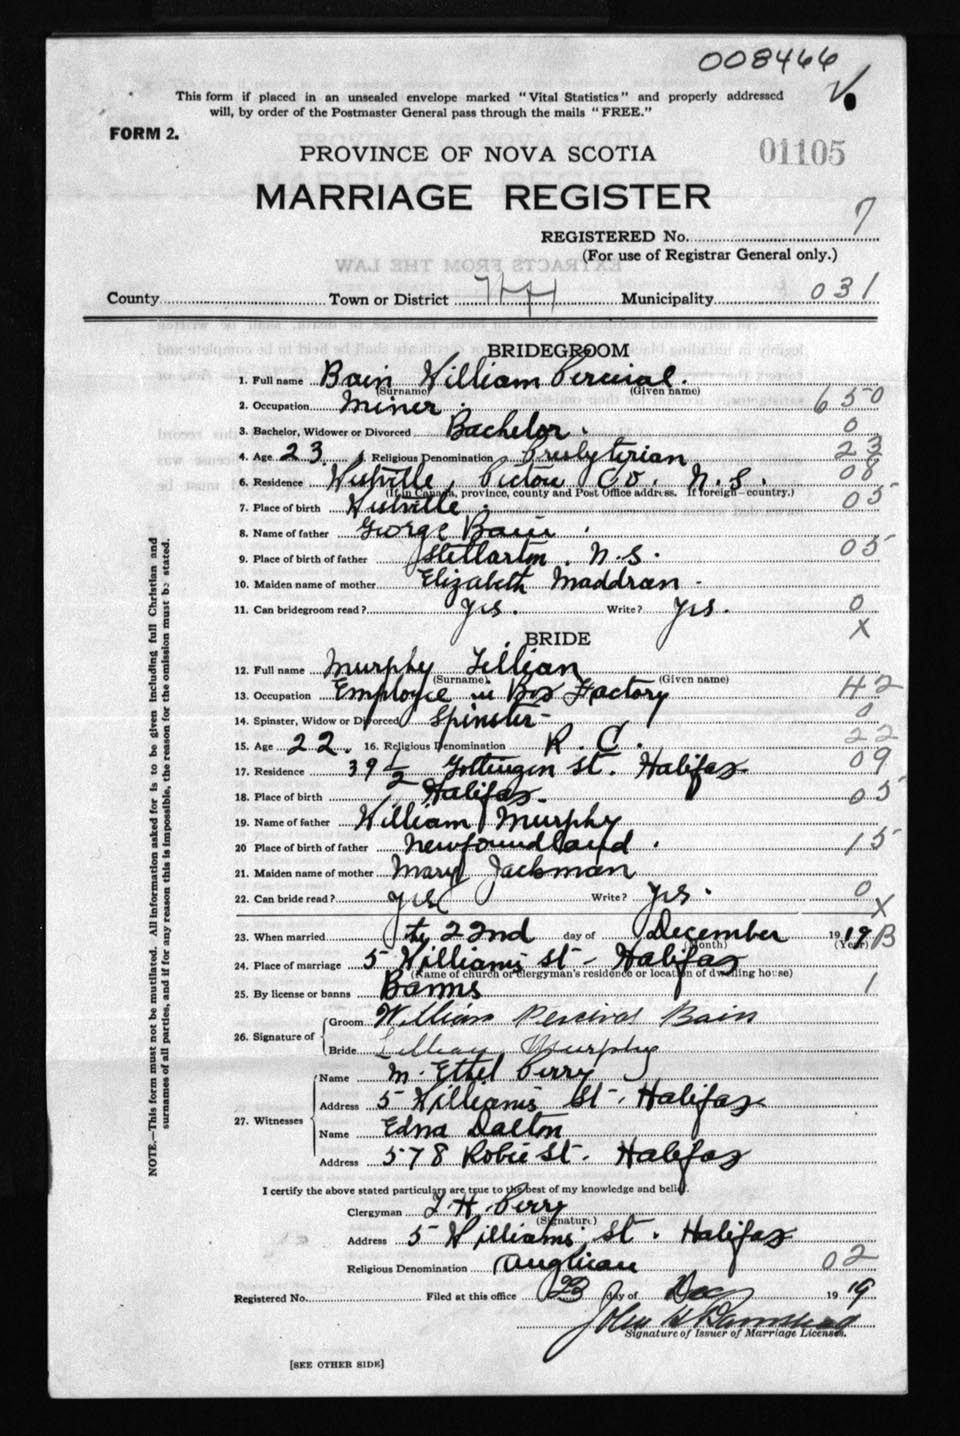 008466
This form if placed in an unsealed envelope marked "Vital Statistics" and properly addressed
will, by order of the Postmaster General pass through the mails "FREE."
FORM 2.
PROVINCE OF NOVA SCOTIA
01105
MARRIAGE REGISTER
REGISTERED No. 7
(For use of Registrar General only.)
County Town or District Hfx Municipality 031
BRIDEGROOM
1. Full name Bain William Percival.
(Surname) (Given name)
2. Occupation Miner. 650
3. Bachelor, Widower or Divorced Bachelor. 0
4. Age 23 Religious Denomination Presbyterian 23
6. Residence Westville, Pictou Co. N.S. 08
(If in Canada, province, county and Post Office address. If foreign—country.)
7. Place of birth Westville. 05
8. Name of father George Bain
9. Place of birth of father Stellarton. N.S. 05
10. Maiden name of mother Elizabeth Maddran
11. Can bridegroom read? Yes. Write? Yes. 0
X
BRIDE
12. Full name Murphy Lillian
(Surname) (Given name)
13. Occupation Employee in Box Factory 42
14. Spinster, Widow or Divorced Spinster 0
15. Age 22. 16. Religious Denomination R. C. 22
17. Residence 39 1/2 Gottingen St. Halifax 09
18. Place of birth Halifax 05
19. Name of father William Murphy
20 Place of birth of father Newfoundland. 15
21. Maiden name of mother Mary Jackman
22. Can bride read? yes Write? yes. 0
X
23. When married the 22nd day of December 1919 B
(Month) (Year)
24. Place of marriage 5 Williams St - Halifax
(Name of church or clergyman's residence or location of dwelling house)
25. By license or banns Banns 1
26. Signature of Groom William Percival Bain
Bride Lillian Murphy
27. Witnesses Name M. Ethel Perry
Address 5 Williams St. Halifax
Name Edna Dalton
Address 578 Robie St. Halifax
I certify the above stated particulars are true to the best of my knowledge and belief.
Clergyman T H Perry
(Signature)
Address 5 Williams St. Halifax
Religious Denomination Anglican 02
Registered No. Filed at this office 23 day of Dec 1919
John H
Signature of Issuer of Marriage Licenses.
[SEE OTHER SIDE]
NOTE.—This form must not be mutilated. All information asked for is to be given including full Christian and
surnames of all parties, and if for any reason this is impossible, the reason for the omission must be stated.